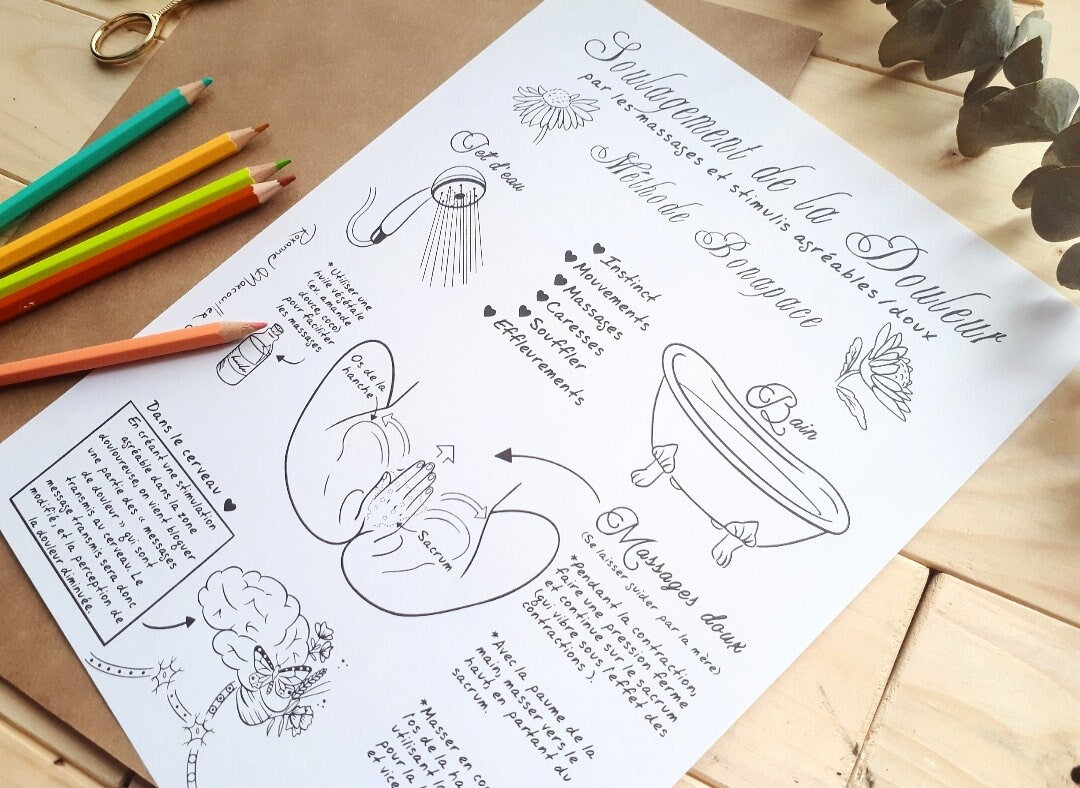 Soulagement de la Douleur
par les massages et stimulis agréables/doux
Méthode Bonapace
Jet d'eau
♥ Instinct
♥ Mouvements
♥ Massages
♥ Caresses
♥ Souffler
♥ Effleurements
*Utiliser une
huile végétale
(ex. amande
douce, coco)
pour faciliter
les massages
Bain
Os de la
hanche
Sacrum
Dans le cerveau ♥
En créant une stimulation
agréable dans la zone
douloureuse, on vient bloquer
une partie des « messages
de douleur » qui sont
transmis au cerveau. Le
message transmis sera donc
modifié, et la perception de
la douleur diminuée.
Massages doux
(Se laisser guider par la mère)
*Pendant la contraction,
faire une pression ferme
et continue sur le sacrum
(qui vibre sous l'effet des
contractions).
*Avec la paume de la
main, masser vers le
haut, en partant du
sacrum.
*Masser en
l'os de la
utilisant
pour la
et vice